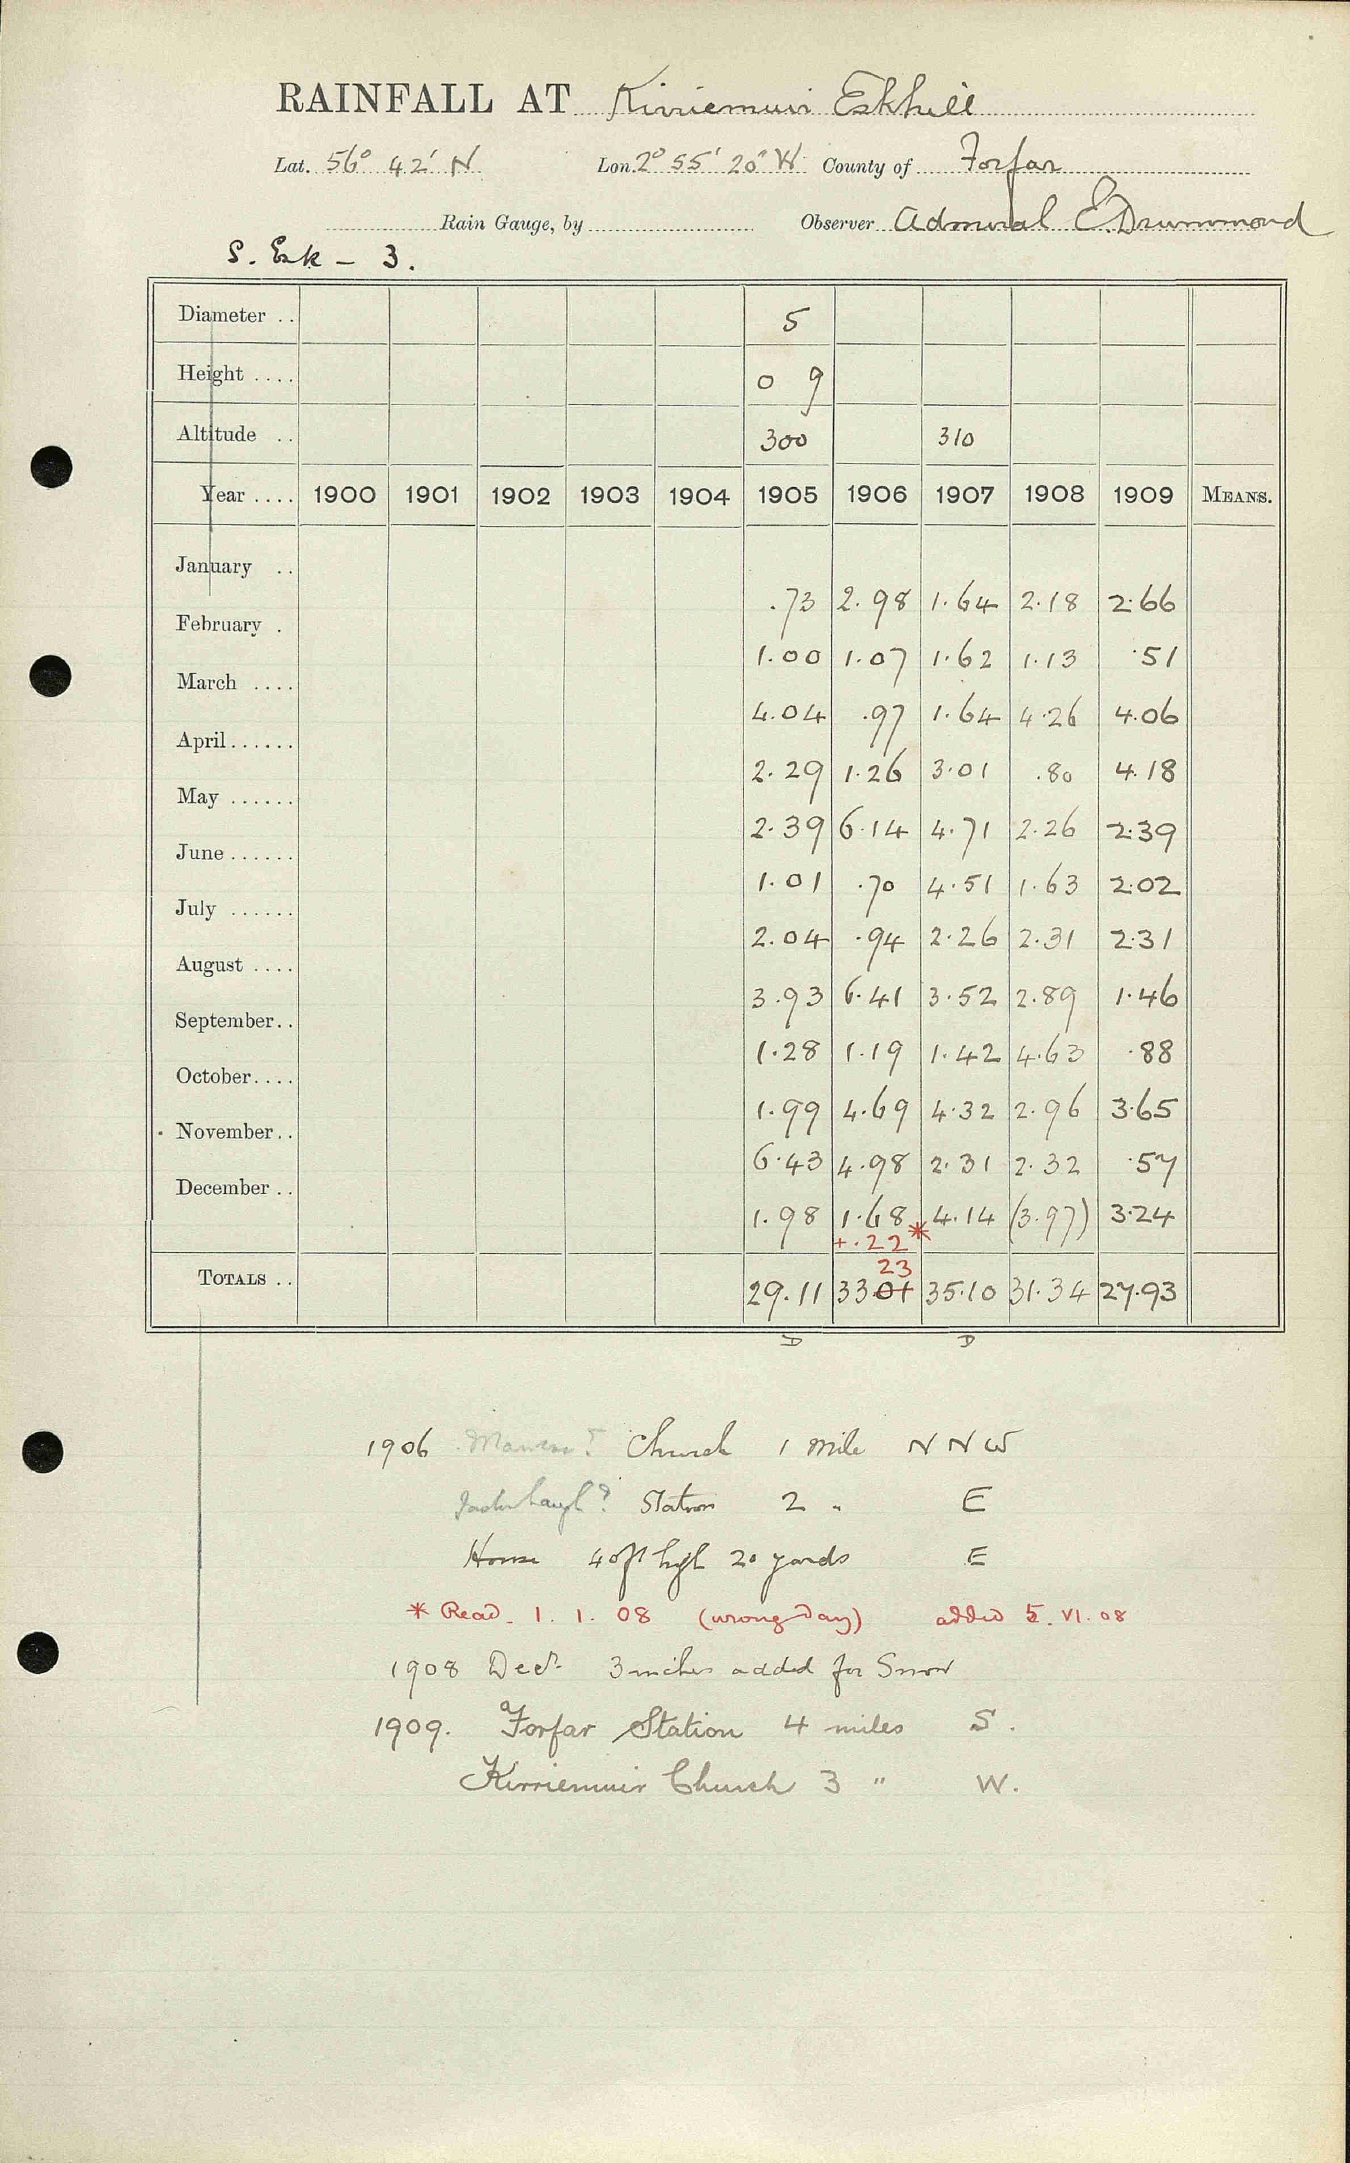 RAINFALL AT Kirriemuir Eskhill
Lat. 56° 42' N Lon. 2° 55' 20" W County of Forfar
Rain Gauge, by Observer Admiral E. Drummond
S. Esk - 3.
Diameter .. 5
Height .... 0 9
Altitude .. 300 310
Year .... 1900 1901 1902 1903 1904 1905 1906 1907 1908 1909 MEANS.
January .. .73 2.98 1.64 2.18 2.66
February . 1.00 1.07 1.62 1.13 .51
March .... 4.04 .97 1.64 4.26 4.06
April...... 2.29 1.26 3.01 .80 4.18
May ...... 2.39 6.14 4.71 2.26 2.39
June...... 1.01 .70 4.51 1.63 2.02
July ...... 2.04 .94 2.26 2.31 2.31
August .... 3.93 6.41 3.52 2.89 1.46
September.. 1.28 1.19 1.42 4.63 .88
October.... 1.99 4.69 4.32 2.96 3.65
November.. 6.43 4.98 2.31 2.32 .57
December .. 1.98 1.68 4.14 (3.97) 3.24
+.22 *
23
TOTALS .. 29.11 33.01 35.10 31.34 27.93
D D
1906 Church 1 mile N N W
Station 2 " E
House 40ft high 20 yards E
* Read 1.1.08 (wrong day) added 5.VI.08
1908 Decr 3 inches added for Snow
1909. Forfar Station 4 miles S.
Kirriemuir Church 3 " W.